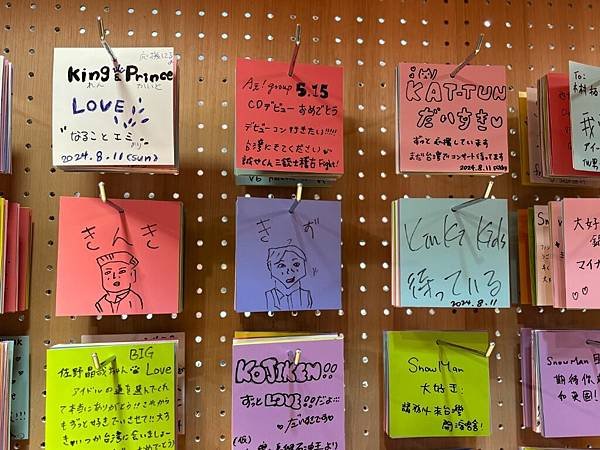 King & Prince
れん かいと
LOVE
なることエミ
2024.8.11(sun)
Aぇ! group 5.15
CDデビューおめでとう
デビューコン行きたい!!!!!
台湾にもきてください
V6
KAT-TUN
だいすき♡
ずっと応援しています
また台湾でコンサート待ってます
2024.8.11
To:
きんき
きず
Kinki Kids
待っている
2024.8.11
大好
マイナ
BIG
佐野晶哉くん Love
アイドルの道を選んでくれ
て本当にありがとう!!これから
もずっと好きでいさせて!!大す
き♥いつか台湾に会いましょー
KOJIKEN!!
ずっとLOVE!!だよ…
♡だいすきです♡
(仮)
SnowMan
大好き:
請務必來台灣
開演唱會!
SnowMan
期待你